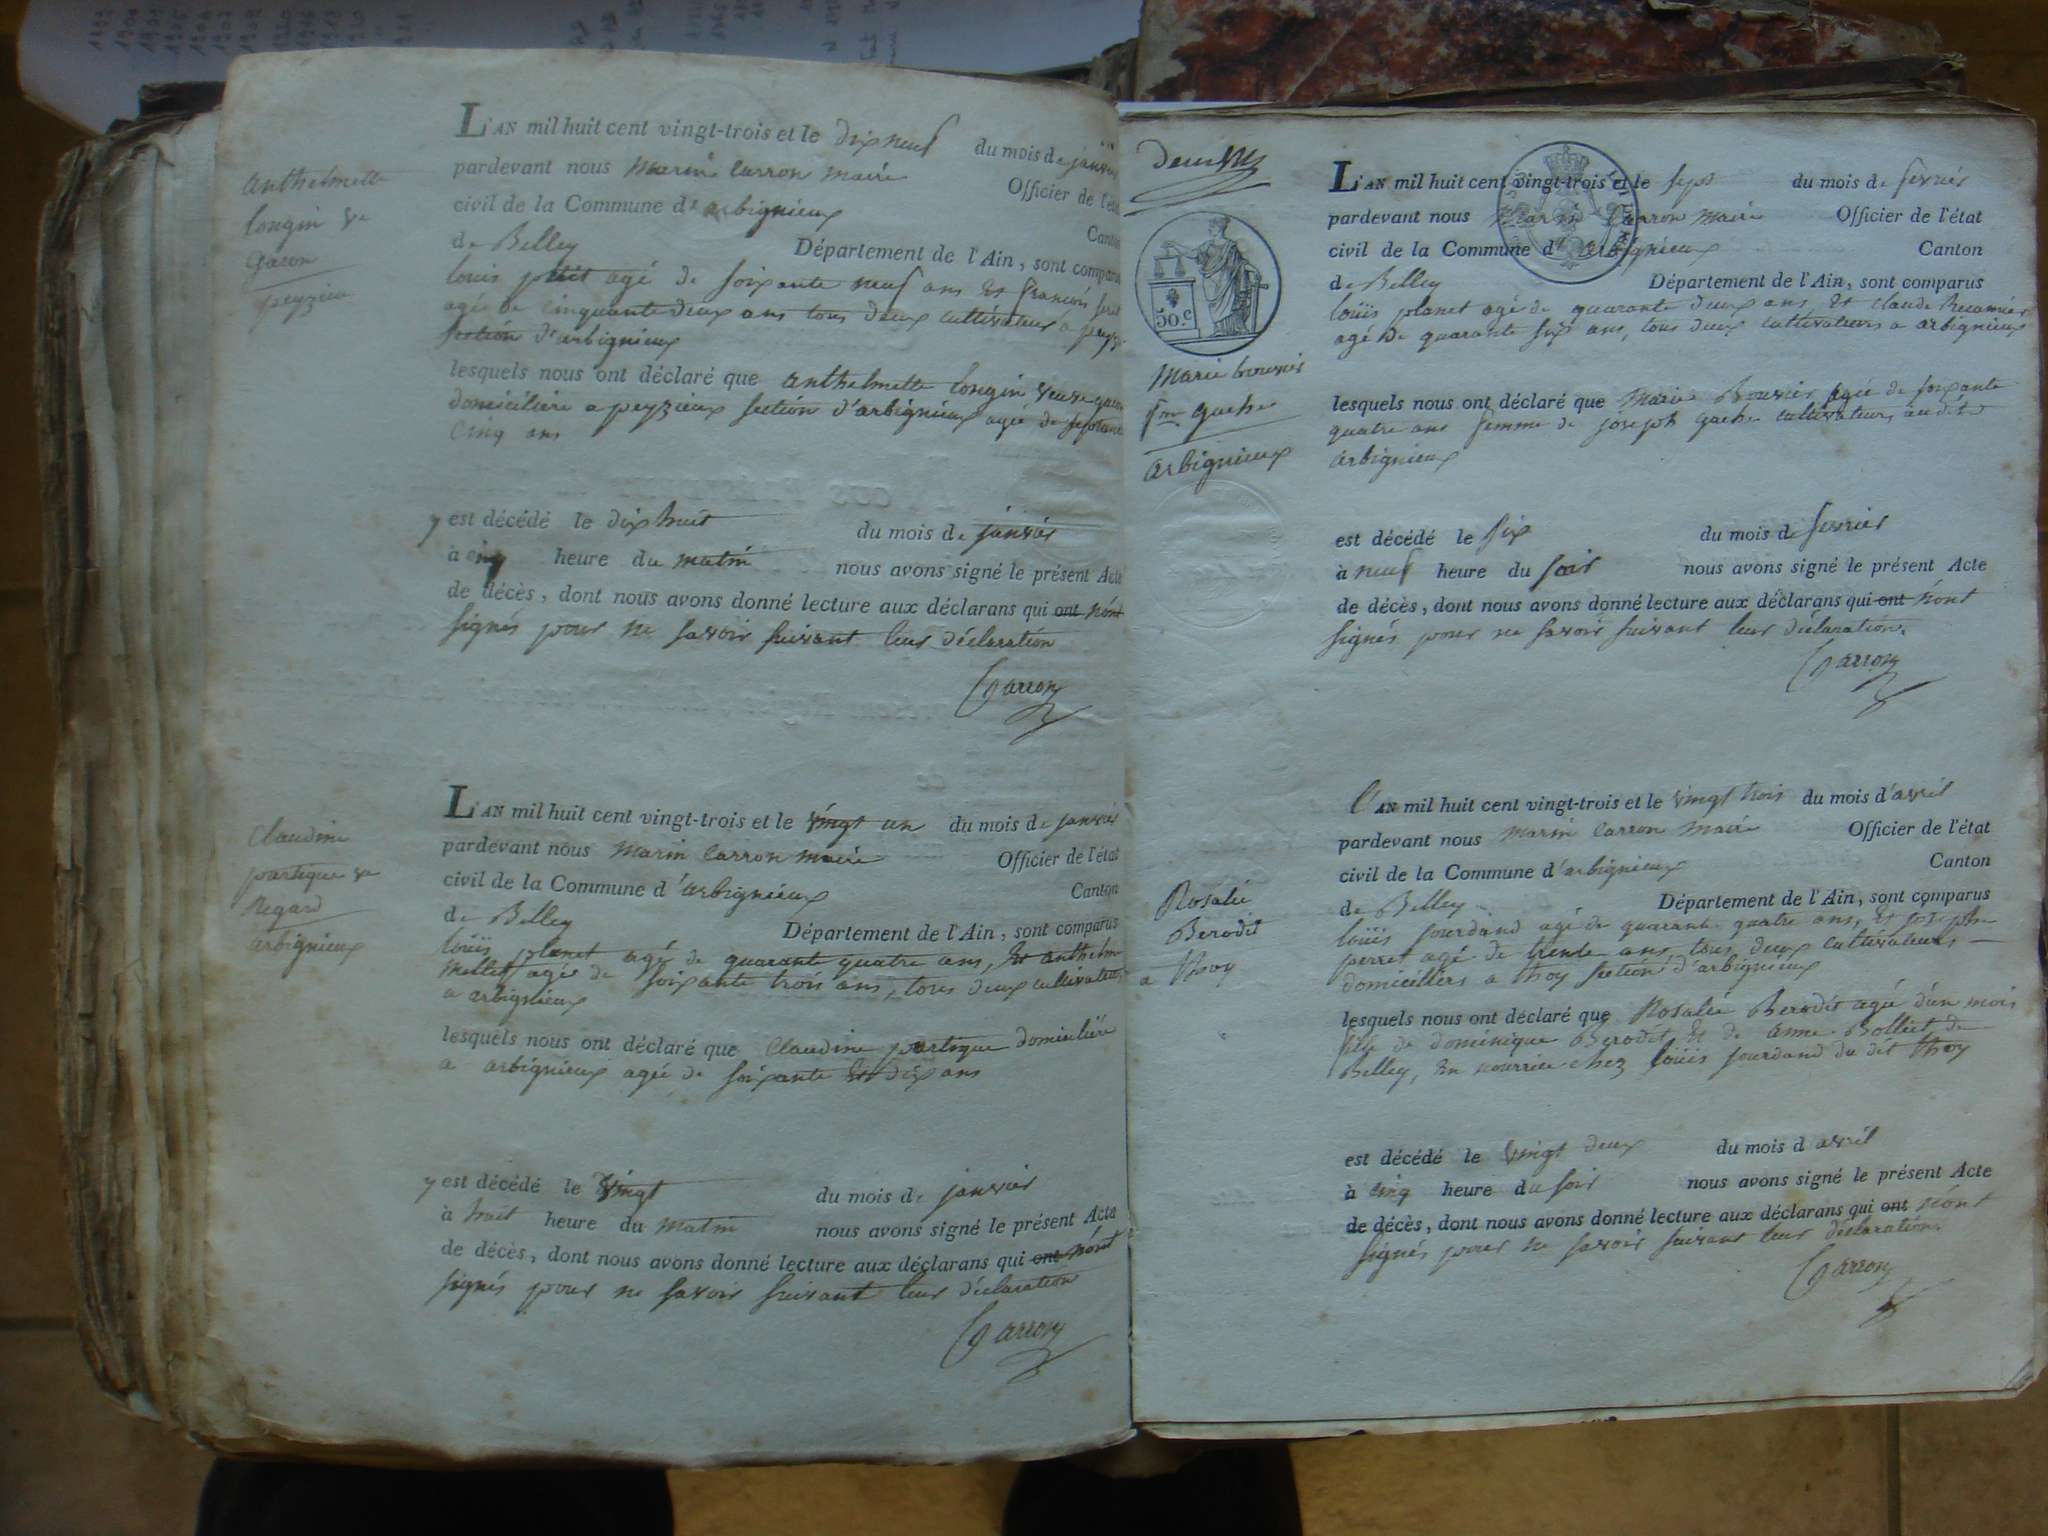 anthelmette
longin ve
garon
peyzieu
L'AN mil huit cent vingt-trois et le dix neuf du mois de janvier
pardevant nous Marin Carron maire Officier de l'état
civil de la Commune d'arbignieux Canton
de Belley Département de l'Ain, sont comparus
louis petit agé de soixante neuf ans et françois
agé de cinquante deux ans tous deux cultivateurs a peyzieu
section d'arbignieux
lesquels nous ont déclaré que anthelmette longin veuve garon
domicilière a peyzieux section d'arbignieux agée de septante
cinq ans
y est décédé le dix huit du mois de janvier
à cinq heure du matin nous avons signé le présent Acte
de décès, dont nous avons donné lecture aux déclarans qui ont n'ont
signés pour ne savoir suivant leur déclaration
Carron
Claudine
partique ve
Regard
arbignieux
L'AN mil huit cent vingt-trois et le vingt un du mois de janvier
pardevant nous Marin Carron maire Officier de l'état
civil de la Commune d'arbignieux Canton
de Belley Département de l'Ain, sont comparus
louïs planet agé de quarant quatre ans, et anthelme
Millet agé de soixante trois ans, tous deux cultivateurs
a arbignieux
lesquels nous ont déclaré que Claudine partique domicilière
a arbignieux agée de soixante et dix ans
y est décédé le vingt du mois de janvier
à huit heure du matin nous avons signé le présent Acte
de décès, dont nous avons donné lecture aux déclarans qui ont n'ont
signés pour ne savoir suivant leur déclaration
Carron
50.c
Marie bouvier
fme gache
arbignieux
L'AN mil huit cent vingt-trois et le sept du mois de fevrier
pardevant nous Marin Carron maire Officier de l'état
civil de la Commune d'arbignieux Canton
de Belley Département de l'Ain, sont comparus
louïs planet agé de quarante deux ans, et Claude Recamier
agé de quarante six ans, tous deux cultivateurs a arbignieux
lesquels nous ont déclaré que Marie Bouvier agée de soixante
quatre ans femme de joseph gache cultivateurs audit
arbignieux
est décédé le six du mois de fevrier
à neuf heure du soir nous avons signé le présent Acte
de décès, dont nous avons donné lecture aux déclarans qui ont n'ont
signés pour ne savoir suivant leur déclaration.
Carron
Rosalie
Berodit
a thoy
L'AN mil huit cent vingt-trois et le vingt trois du mois d'avril
pardevant nous Marin Carron maire Officier de l'état
civil de la Commune d'arbignieux Canton
de Belley Département de l'Ain, sont comparus
louïs jourdand agé de quarante quatre ans, et joseph
perret agé de trente ans tous deux cultivateurs
domicilliers a thoy section d'arbignieux
lesquels nous ont déclaré que Rosalie Berodit agée d'un mois
fille de dominique Berodit et de anne Bolliet de
Belley, en nourrice chez louïs jourdand du dit thoy
est décédé le vingt deux du mois d avril
à cinq heure du soir nous avons signé le présent Acte
de décès, dont nous avons donné lecture aux déclarans qui ont n'ont
signés pour ne savoir suivant leur déclaration.
Carron